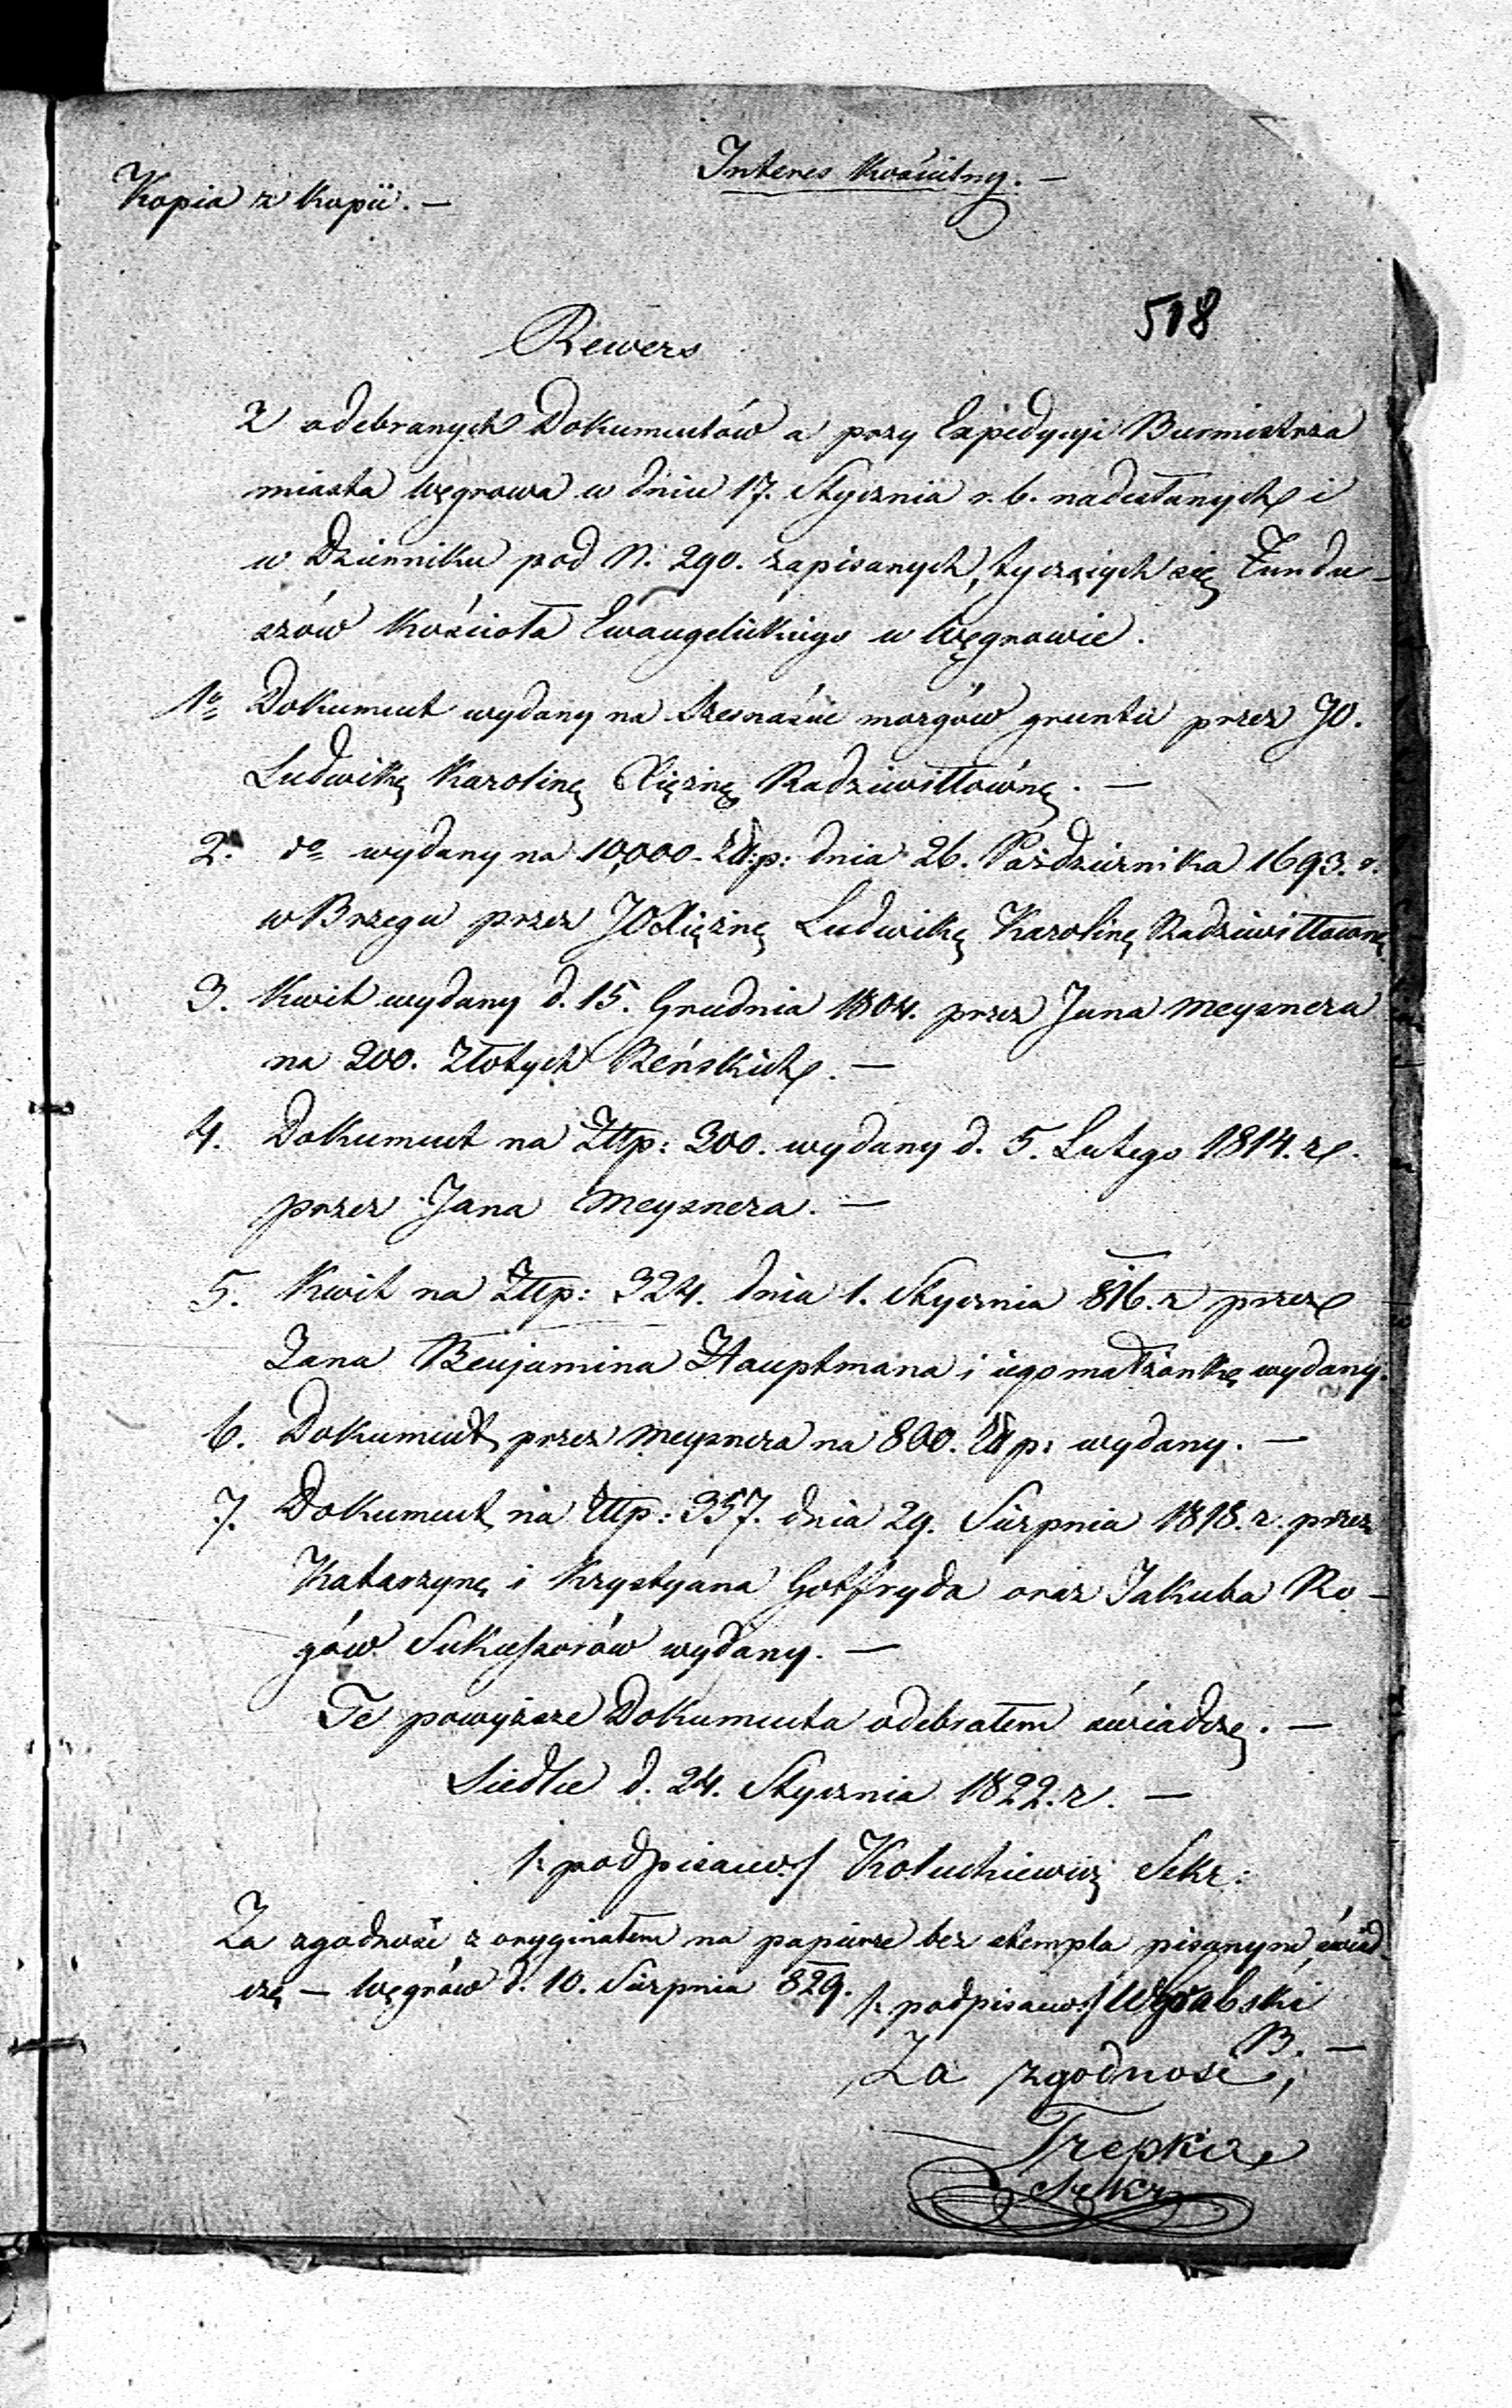 Interes Kościelny. —
Kopia z Kopii. —
518
Rewers
z odebranych Dokumentów a przy Expedycyi Burmistrza
miasta Węgrowa w dniu 17. Stycznia r. b. nadesłanych i
w Dzienniku pod N. 290. zapisanych, tyczących się Fundu-
szów Kościoła Ewangelickiego w Węgrowie.
1o Dokument wydany na szesnaście morgów gruntu przez JO.
Ludwikę Karolinę Xiężnę Radziwiłłównę. —
2. do wydany na 10,000 Złp: dnia 26. Października 1693. r.
w Brzegu przez JO Xiężnę Ludwikę Karolinę Radziwiłłównę
3. Kwit wydany d. 15. Grudnia 1804. przez Jana Meysnera
na 200. Złotych Reńskich. —
4. Dokument na Złp: 300. wydany d. 5. Lutego 1814. r.
przez Jana Meysnera. —
5. Kwit na Złp: 324. dnia 1. Stycznia 816. r przez
Jana Benjamina Hauptmana i iego małżonkę wydany.
6. Dokument przez Meysnera na 800. Złp: wydany. —
7. Dokument na Złp: 357. dnia 29. Sierpnia 1818. r. przez
Katarzynę i Krystyana Gotfryda oraz Jakuba Ro-
gów Sukcessorów wydany. —
Te powyższe Dokumenta odebrałem świadczę. —
Siedlce d. 24. Stycznia 1822. r. —
/: podpisano :/ Kołuckiewicz Sekr:
Za zgodność z oryginałem na papierze bez stempla pisanym, świad-
czę — Węgrów d. 10. Sierpnia 829. /: podpisano :/ Wgrabski
B. —
Za zgodność,
Sekr